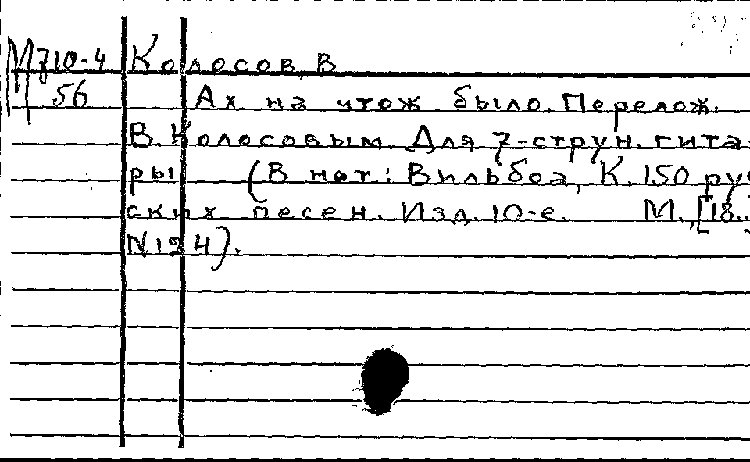 М710-4 Колосов, В
56 Ах на чтож было. Перелож.
В. Колосовым. Для 7-струн. гита-
ры (В нот: Вильбоа, К. 150 рус
ских песен. Изд. 10-е. М., [18..]
N124).